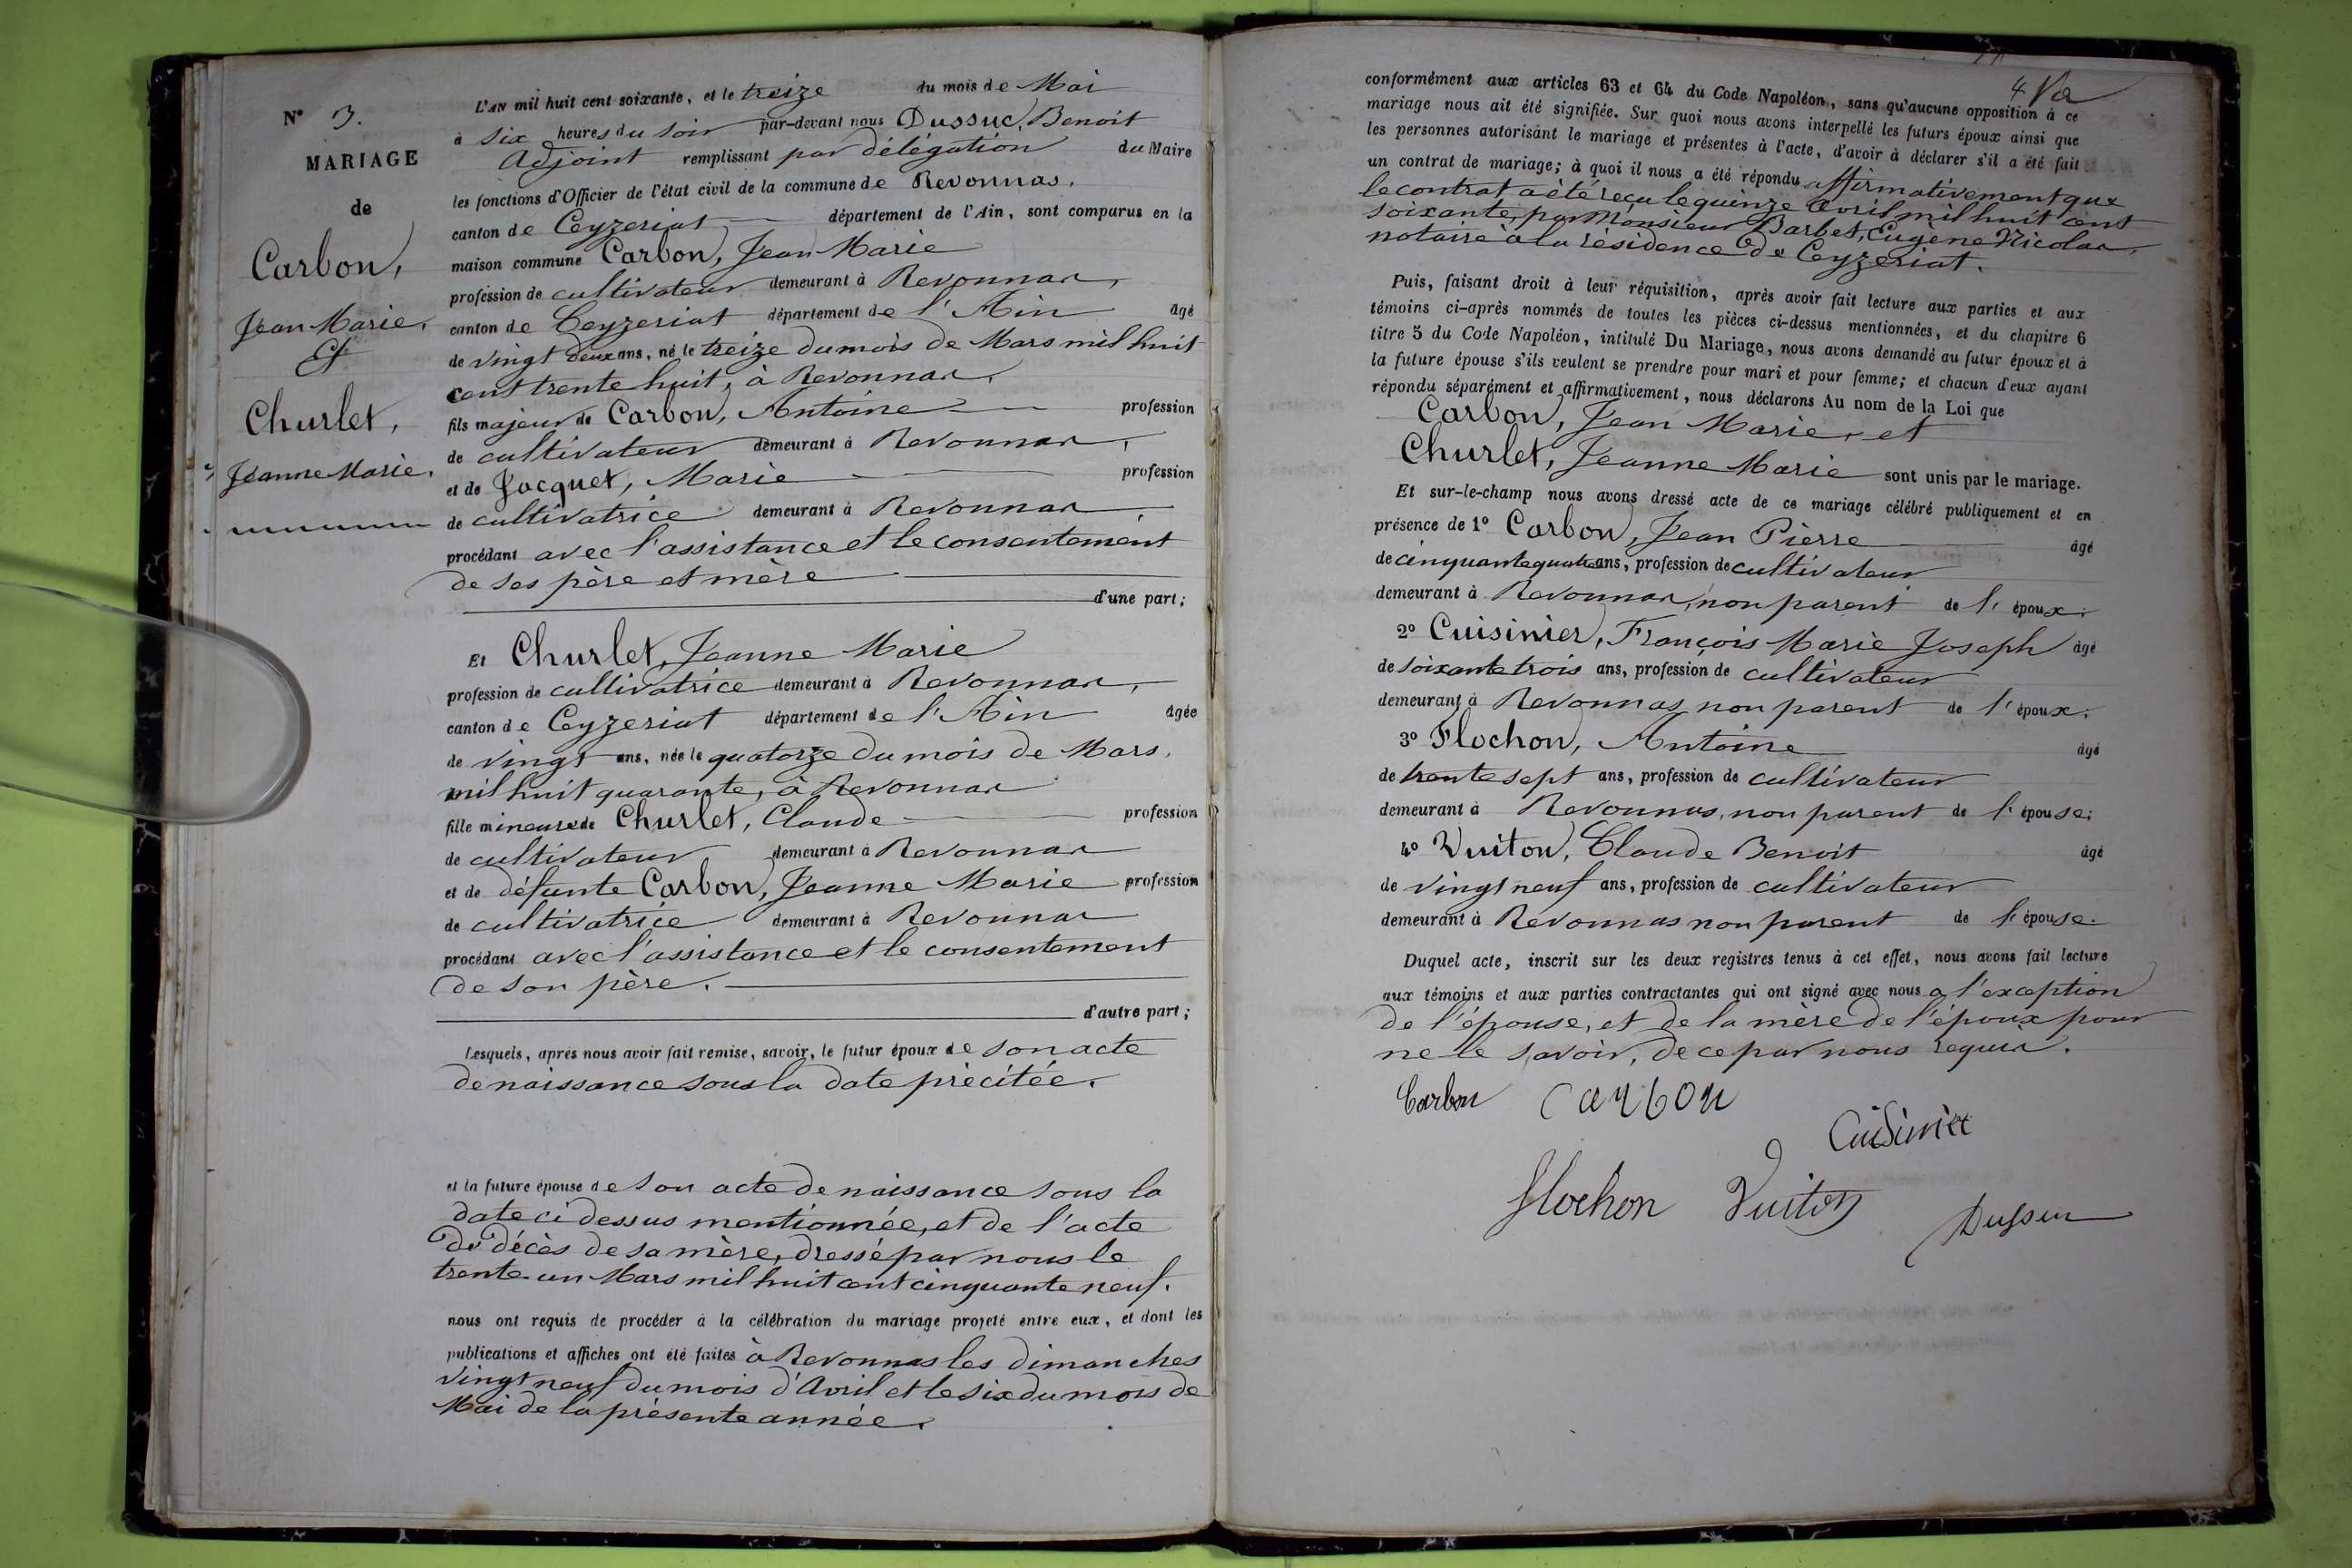 N° 3.
MARIAGE
de
Carbon,
Jean Marie.
Et
Churlet,
Jeanne Marie.
L'AN mil huit cent soixante, et le treize du mois de Mai
à six heures du soir par-devant nous Dussuc, Benoit
Adjoint remplissant par délégation du Maire
les fonctions d'Officier de l'état civil de la commune de Revonnas.
canton de Ceyzeriat département de l'Ain, sont comparus en la
maison commune Carbon, Jean Marie
profession de cultivateur demeurant à Revonnas,
canton de Ceyzeriat département de l'Ain âgé
de vingt deux ans, né le treize du mois de Mars mil huit
cent trente huit, à Revonnas,
fils majeur de Carbon, Antoine profession
de cultivateur demeurant à Revonnas,
et de Jacquet, Marie profession
de cultivatrice demeurant à Revonnas
procédant avec l'assistance et le consentement
de ses père et mère
d'une part;
Et Churlet, Jeanne Marie
profession de cultivatrice demeurant à Revonnas,
canton de Ceyzeriat département de l'Ain âgée
de vingt ans, née le quatorze du mois de Mars,
mil huit quarante, à Revonnas
fille mineure de Churlet, Claude profession
de cultivateur demeurant à Revonnas
et de défunte Carbon, Jeanne Marie profession
de cultivatrice demeurant à Revonnas
procédant avec l'assistance et le consentement
de son père.
d'autre part;
Lesquels, après nous avoir fait remise, savoir, le futur époux de son acte
de naissance sous la date précitée.
et la future épouse de son acte de naissance sous la
date ci dessus mentionnée, et de l'acte
de décès de sa mère, dressé par nous le
trente-un Mars mil huit cent cinquante neuf.
nous ont requis de procéder à la célébration du mariage projeté entre eux, et dont les
publications et affiches ont été faites à Revonnas les dimanches
vingt neuf du mois d'Avril et le six du mois de
Mai de la présente année.
4
conformément aux articles 63 et 64 du Code Napoléon, sans qu'aucune opposition à ce
mariage nous ait été signifiée. Sur quoi nous avons interpellé les futurs époux ainsi que
les personnes autorisant le mariage et présentes à l'acte, d'avoir à déclarer s'il a été fait
un contrat de mariage; à quoi il nous a été répondu affirmativement que
le contrat a été reçu le quinze Avril mil huit cent
soixante, par Monsieur Barbet, Eugène Nicolas,
notaire à la résidence de Ceyzeriat.
Puis, faisant droit à leur réquisition, après avoir fait lecture aux parties et aux
témoins ci-après nommés de toutes les pièces ci-dessus mentionnées, et du chapitre 6
titre 5 du Code Napoléon, intitulé Du Mariage, nous avons demandé au futur époux et à
la future épouse s'ils veulent se prendre pour mari et pour femme; et chacun d'eux ayant
répondu séparément et affirmativement, nous déclarons Au nom de la Loi que
Carbon, Jean Marie, et
Churlet, Jeanne Marie sont unis par le mariage.
Et sur-le-champ nous avons dressé acte de ce mariage célébré publiquement et en
présence de 1° Carbon, Jean Pierre âgé
de cinquante quatre ans, profession de cultivateur
demeurant à Revonnas, non parent de l'époux.
2° Cuisinier, François Marie Joseph âgé
de soixante trois ans, profession de cultivateur
demeurant à Revonnas non parent de l'époux.
3° Flochon, Antoine âgé
de trente sept ans, profession de cultivateur
demeurant à Revonnas, non parent de l'épouse;
4° Vuiton, Claude Benoit âgé
de vingt neuf ans, profession de cultivateur
demeurant à Revonnas non parent de l'épouse.
Duquel acte, inscrit sur les deux registres tenus à cet effet, nous avons fait lecture
aux témoins et aux parties contractantes qui ont signé avec nous a l'exception
de l'épouse, et de la mère de l'époux pour
ne le savoir, de ce par nous requis.
Carbon Carbon
Cuisinier
flochon Vuiton
Dussuc